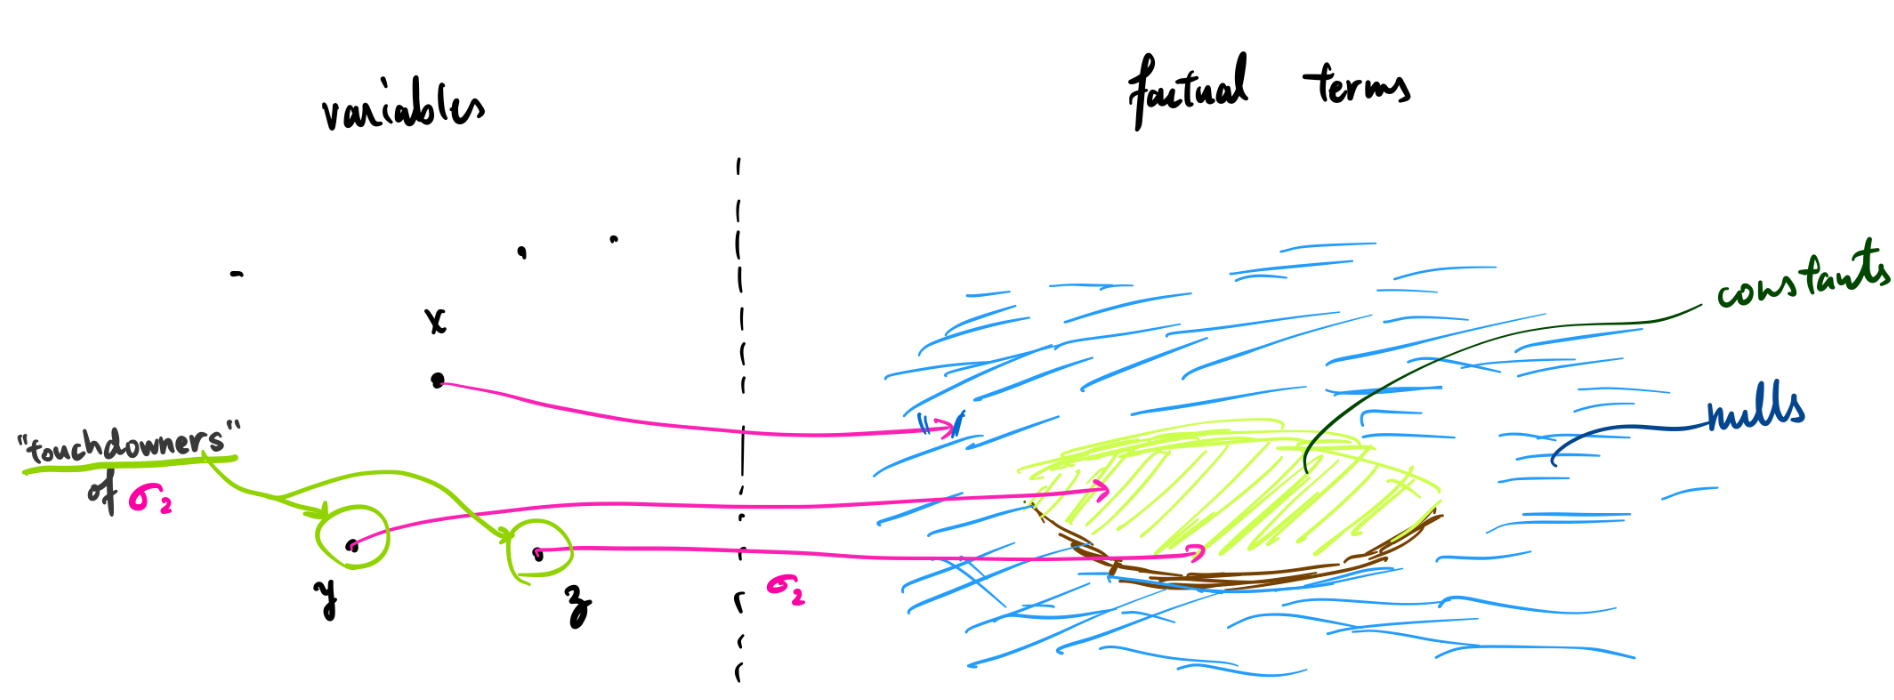 variables
factual terms
constants
x
nulls
"touchdowners"
of σ₂
y
z
σ₂